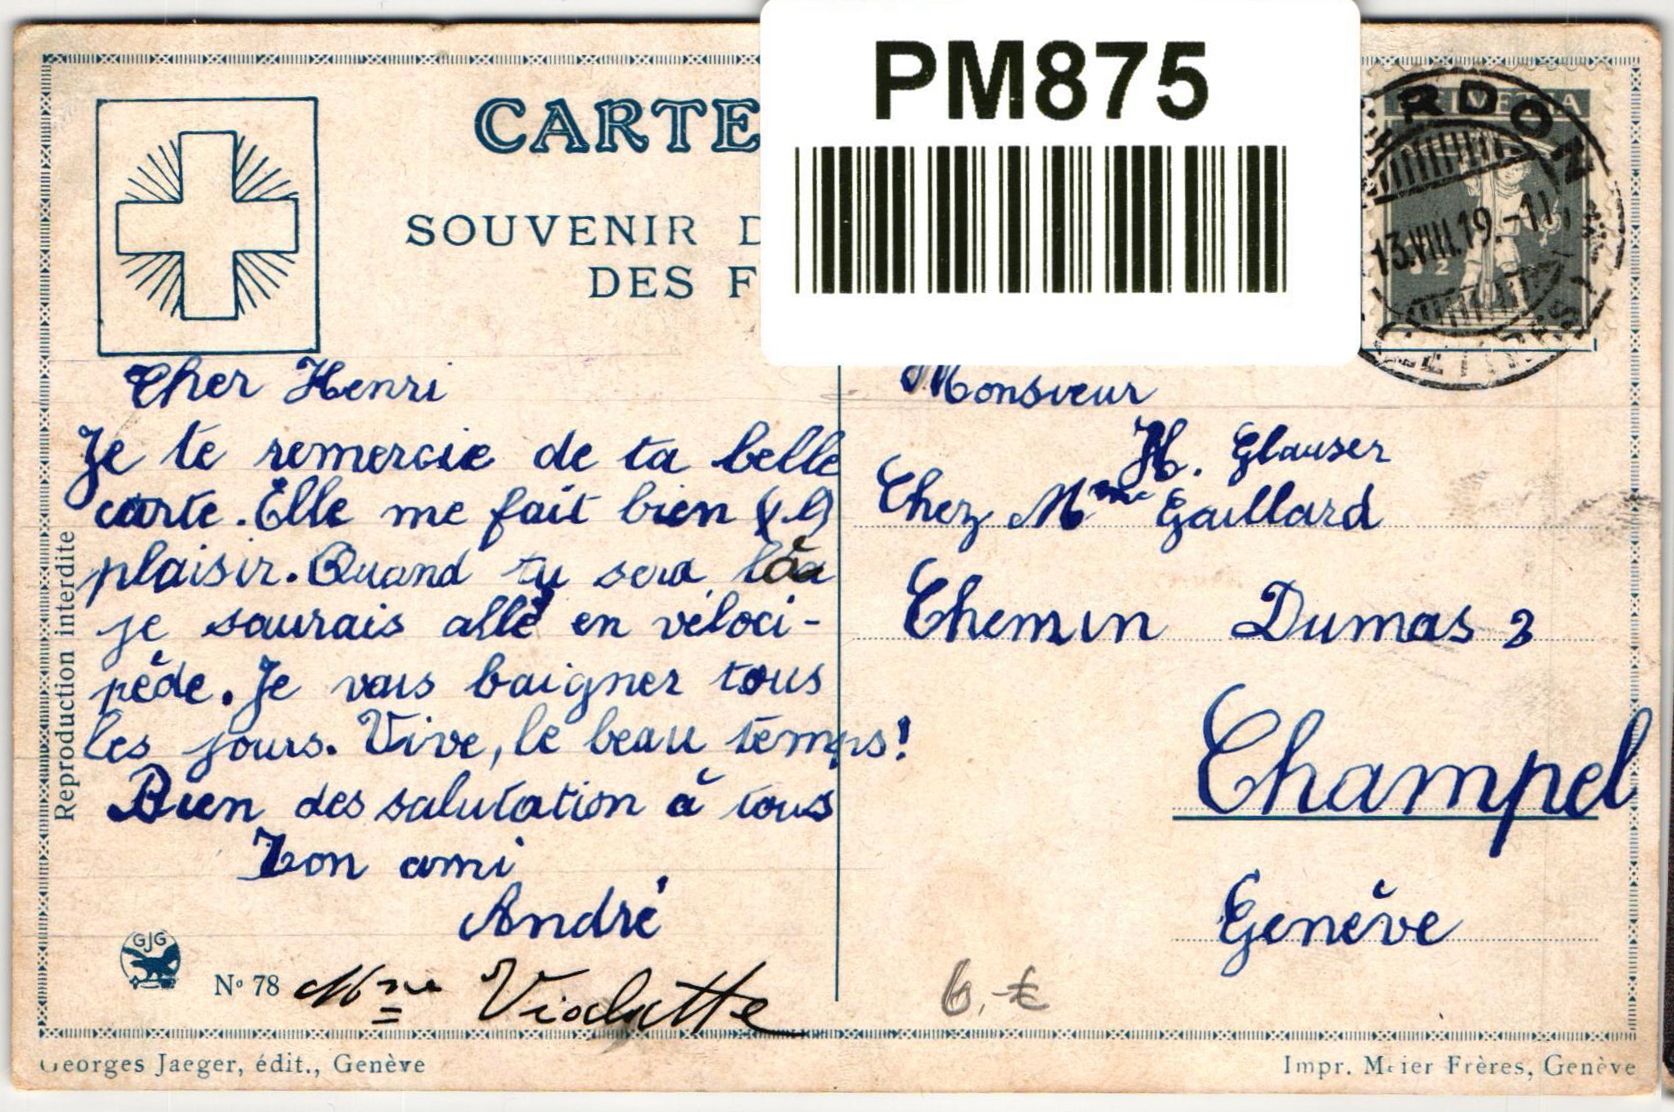 PM875
CARTE
SOUVENIR D
DES F
HELVETIA
ERDON
13.VIII.19.-11
Cher Henri
Je te remercie de ta belle
carte. Elle me fait bien
plaisir. Quand tu sera là
je saurais allé en véloci-
pède. Je vais baigner tous
les jours. Vive, le beau temps!
Bien des salutation à tous
Ton ami
André
Monsieur
H. Glauser
Chez Mme Gaillard
Chemin Dumas 2
Champel
Genève
Reproduction interdite
GJG
No 78
Mme Violatte
6.-€
Georges Jaeger, édit., Genève
Impr. Meier Frères, Genève